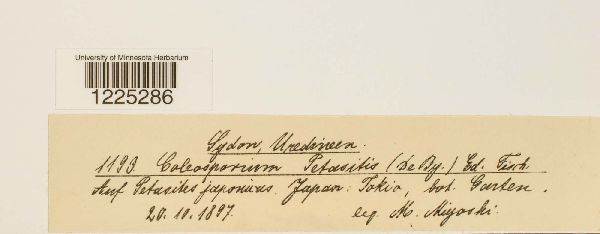 University of Minnesota Herbarium
1225286
Sydow, Uredineen.
1193. Coleosporium Petasitis (De By.) Ed. Fisch.
Auf Petasites japonicus. Japan: Tokio, bot. Garten.
20.10.1897. leg. M. Miyoshi.